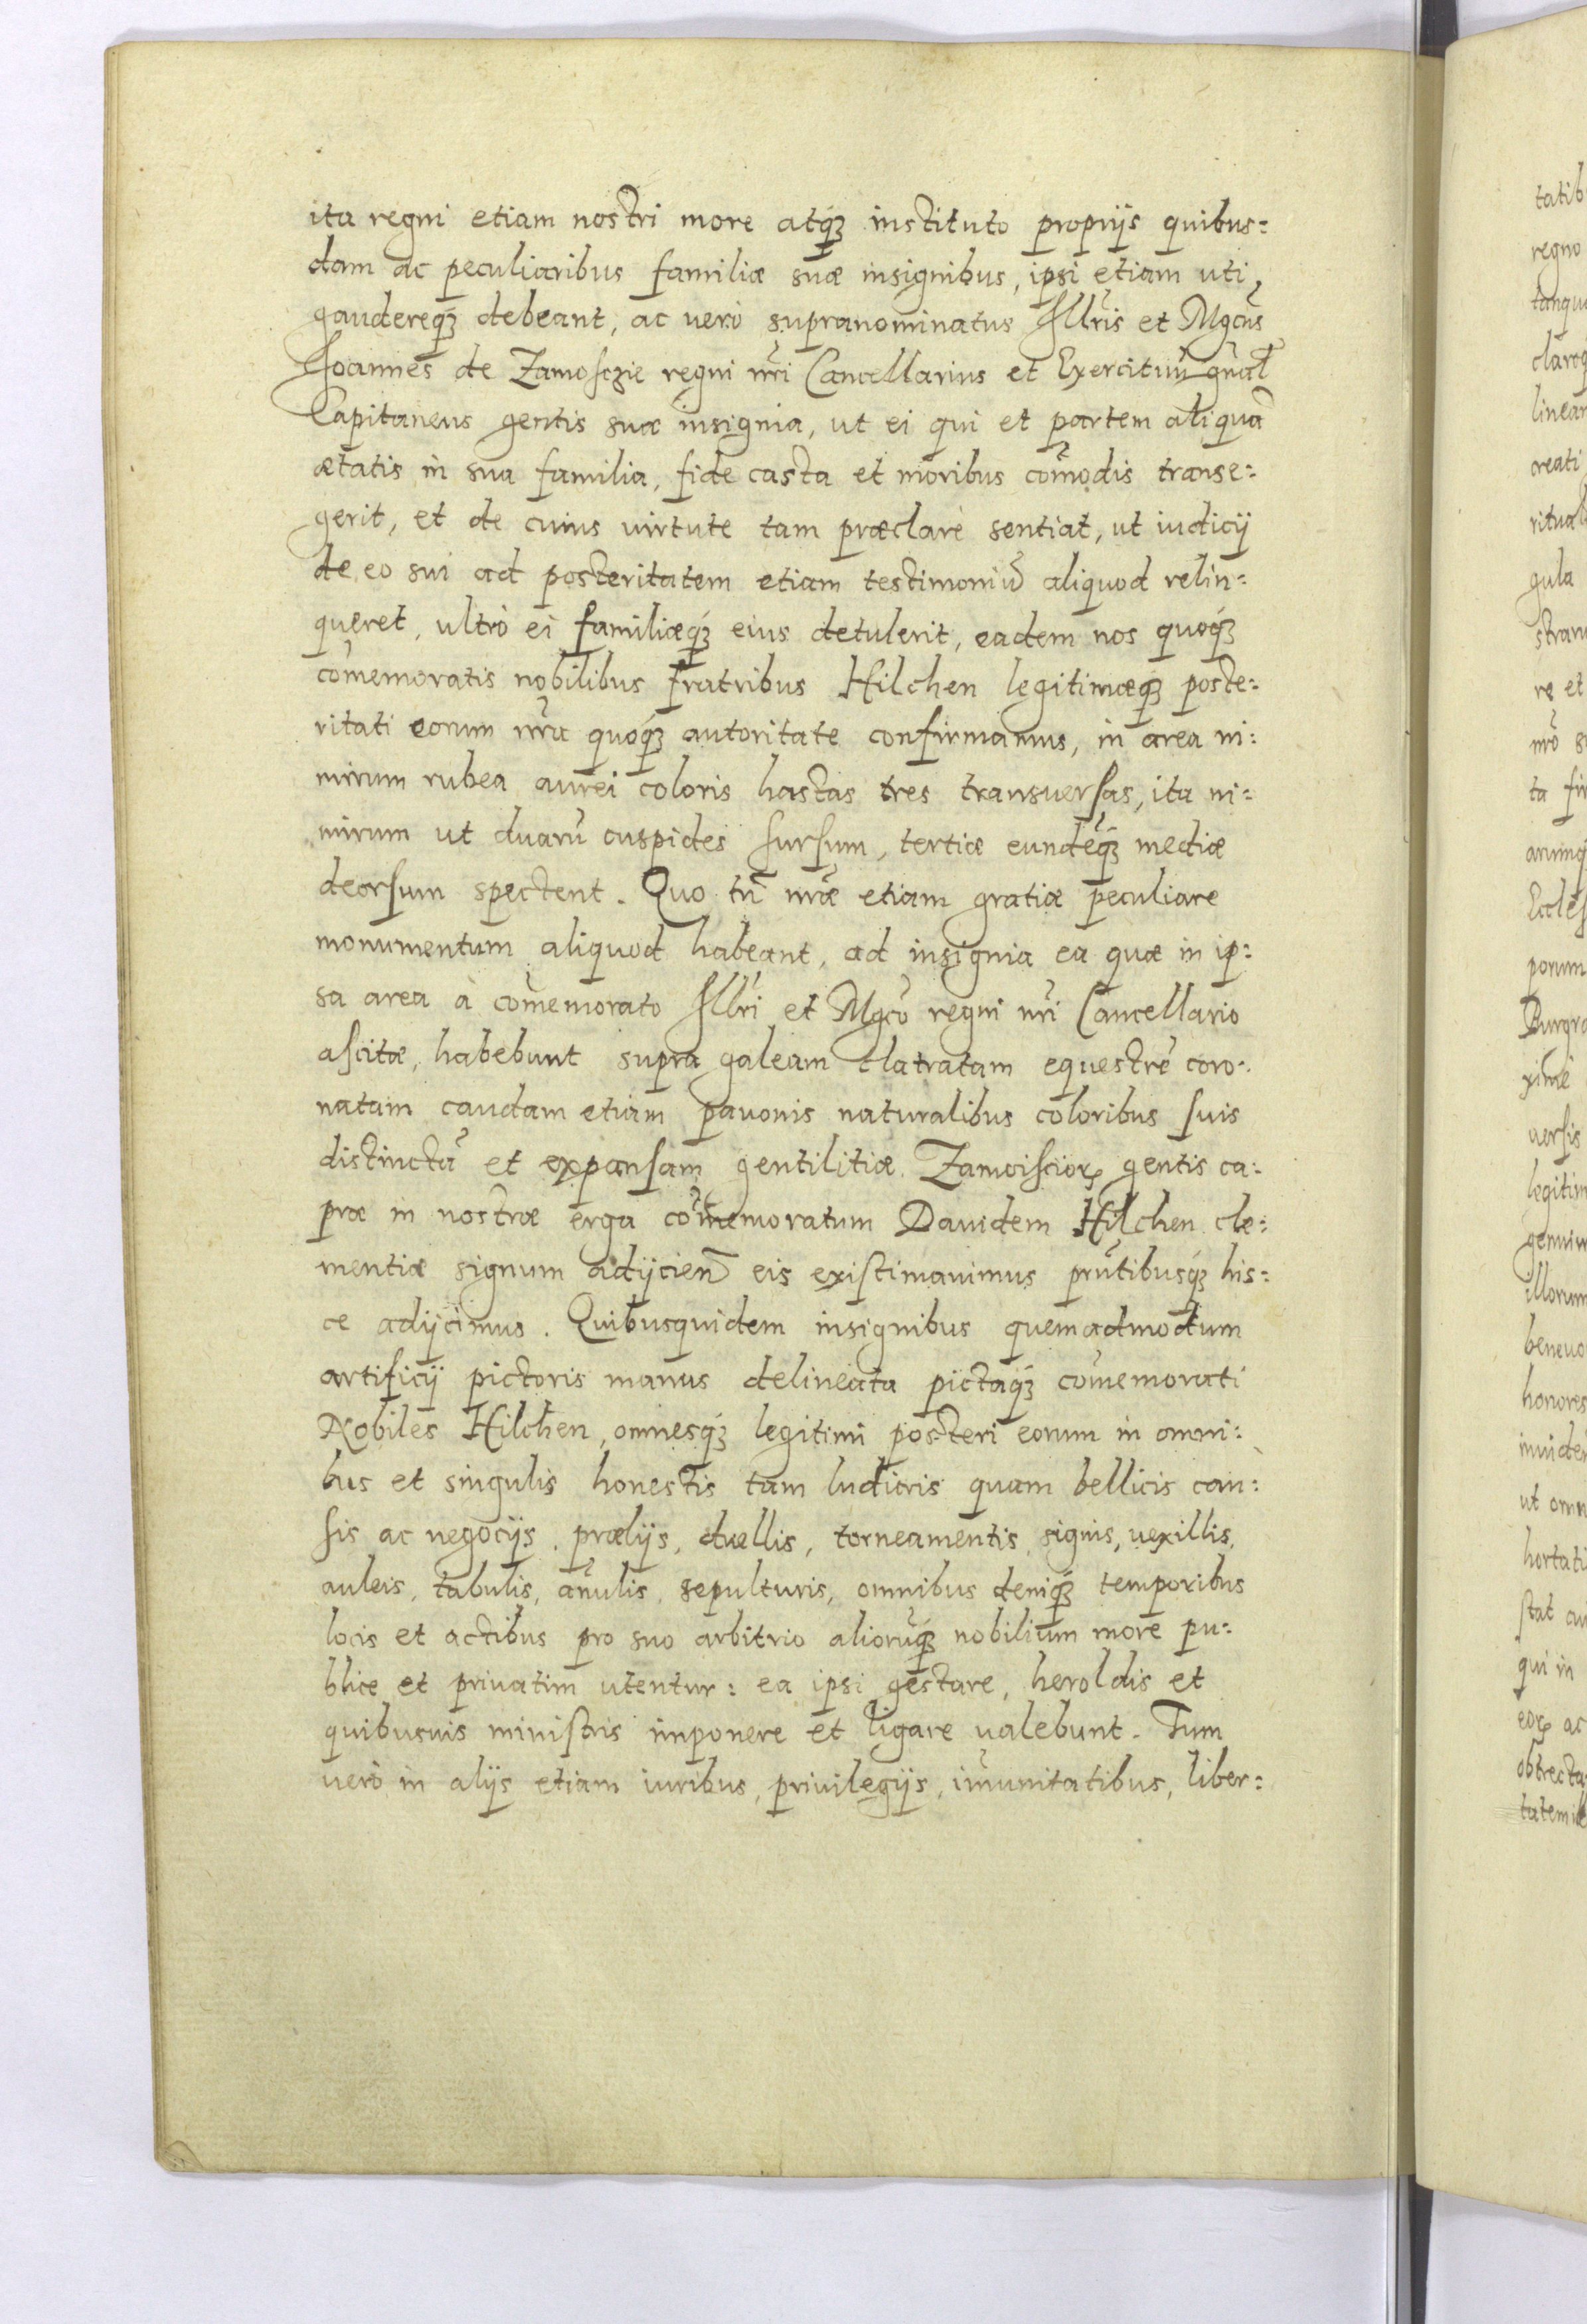 ita regni etiam nostri more atq́ꝫ instituto proprijs quibus:
dam ac peculiaribus familiæ suæ insignibus, ipsi etiam uti,
gaudereq́ꝫ debeant, ac uerò supranominatus Illr̃is et Mgcũs
Ioannes de Zamosczie regni nr̃i Cancellarius et Exercituũ gñal̃
Capitaneus gentis suæ insignia, ut ei qui et partem aliquã
ætatis in sua familia, fide casta et moribus com̃odis transe:
gerit, et de cuius uirtute tam præclarè sentiat, ut iudicij
de eo sui ad posteritatem etiam testimoniũ aliquod relin:
queret, ultrò ei familiæq́ꝫ eius detulerit, eadem nos quoq́ꝫ
com̃emoratis nobilibus fratribus Hilchen legitimæq́ꝫ poste:
ritati eorum nr̃a quoq́ꝫ autoritate confirmamus, in area ni:
mirum rubea aurei coloris hastas tres transuersas, ita ni:
mirum ut duarũ cuspides sursum, tertiæ eundẽq́ꝫ mediæ
deorsum spectent. Quo tñ nr̃æ etiam gratiæ peculiare
monumentum aliquod habeant, ad insignia ea quæ in ip:
sa area à com̃emorato Illr̃i et Mgcõ regni nr̃i Cancellario
ascitæ, habebunt supra galeam clatratam equestrẽ coro:
natam caudam etiam pauonis naturalibus coloribus suis
distinctã et expansam gentilitiæ Zamoisciorꝝ gentis ca:
præ in nostræ erga com̃emoratum Dauidem Hilchen cle:
mentiæ signum adijcien̄ eis existimauimus prñtibusq́ꝫ his:
ce adijcimus. Quibusquidem insignibus quemadmodum
artificij pictoris manus delineata pictaq́ꝫ com̃emorati
Nobiles Hilchen, omnesq́ꝫ legitimi posteri eorum in omni:
bus et singulis honestis tam ludicris quam bellicis cau:
sis ac negocijs, prælijs, duellis, torneamentis, signis, uexillis,
auleis, tabulis, añulis, sepulturis, omnibus deniq́ꝫ temporibus
locis et actibus pro suo arbitrio aliorũq́ꝫ nobilium more pu:
blice et priuatim utentur: ea ipsi gestare, heroldis et
quibusuis ministris imponere et ligare ualebunt. Tum
uerò in alijs etiam iuribus, priuilegijs, im̃unitatibus, liber: